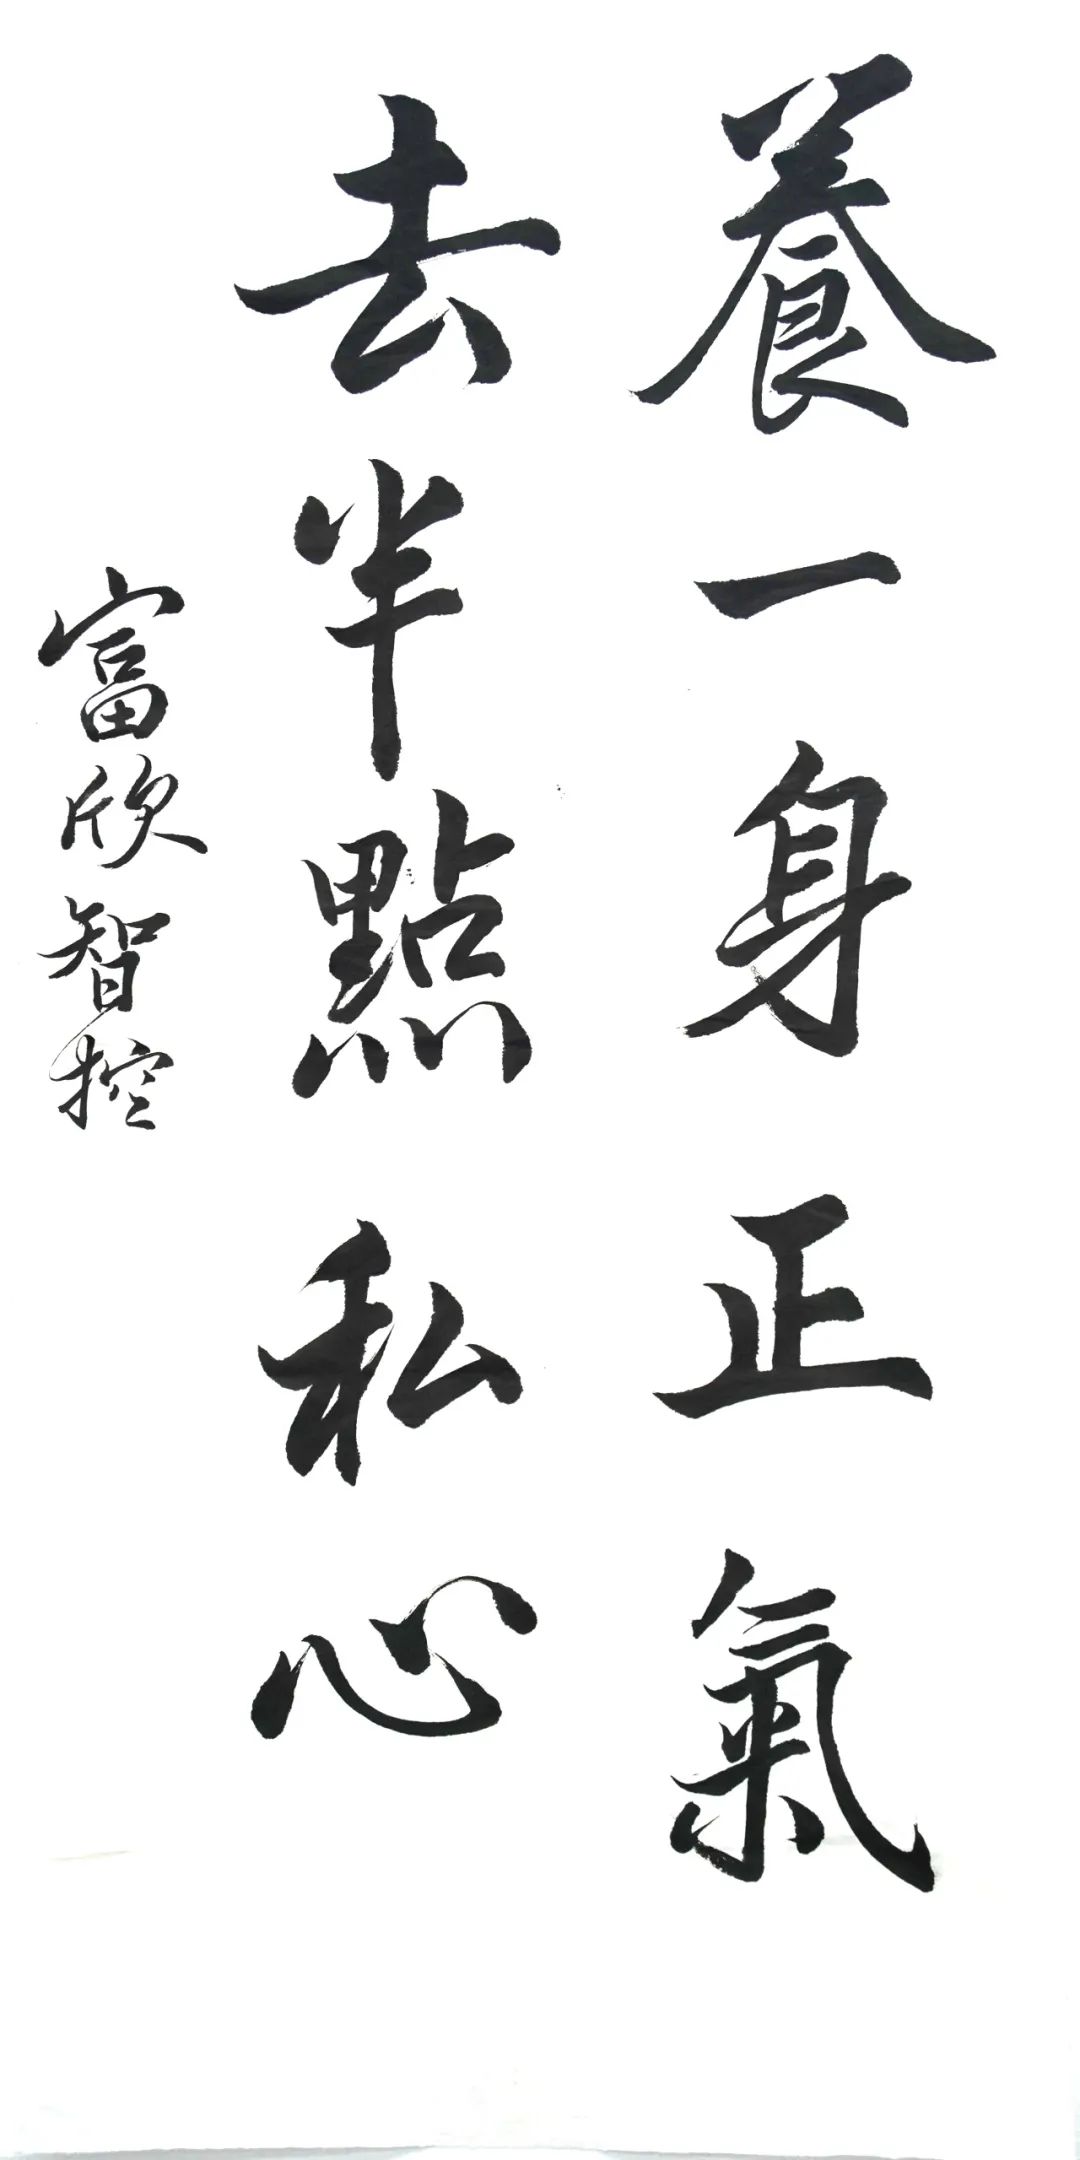 養一身正氣
去半點私心
富欣智控